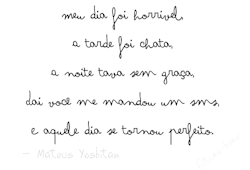 meu dia foi horrível,
a tarde foi chata,
a noite tava sem graça,
dai você me mandou um sms,
e aquele dia se tornou perfeito.
— Mateus